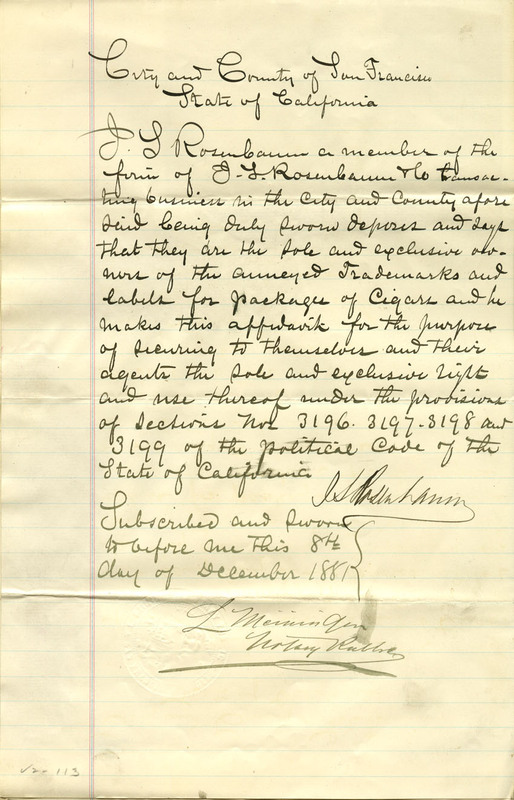 City and County of San Francisco
State of California
J. S Rosenbaum a member of the
firm of J. S. Rosenbaum & Co transac-
ting business in the City and County afore
said being duly sworn deposes and says
that they are the sole and exclusive ow-
ners of the annexed Trademarks and
labels for packages of Cigars and he
makes this affidavit for the purpose
of securing to themselves and their
agents the sole and exclusive right
and use thereof under the provisions
of Sections Nos 3196. 3197-3198 and
3199 of the political Code of the
State of California
J S Rosenbaum
Subscribed and sworn
to before me this 8th
day of December 1881
L Meininger
Notary Public
113